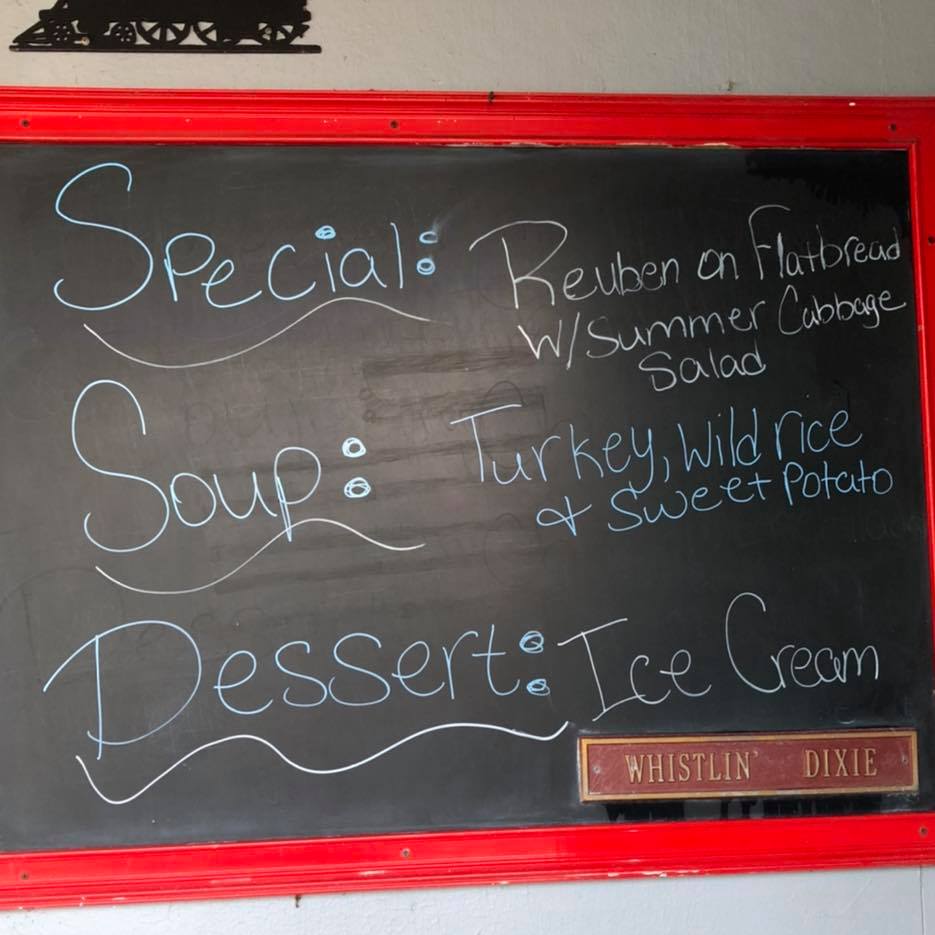 Special: Reuben on Flatbread
W/ Summer Cabbage
Salad
Soup: Turkey, Wild rice
& Sweet Potato
Dessert: Ice Cream
WHISTLIN' DIXIE